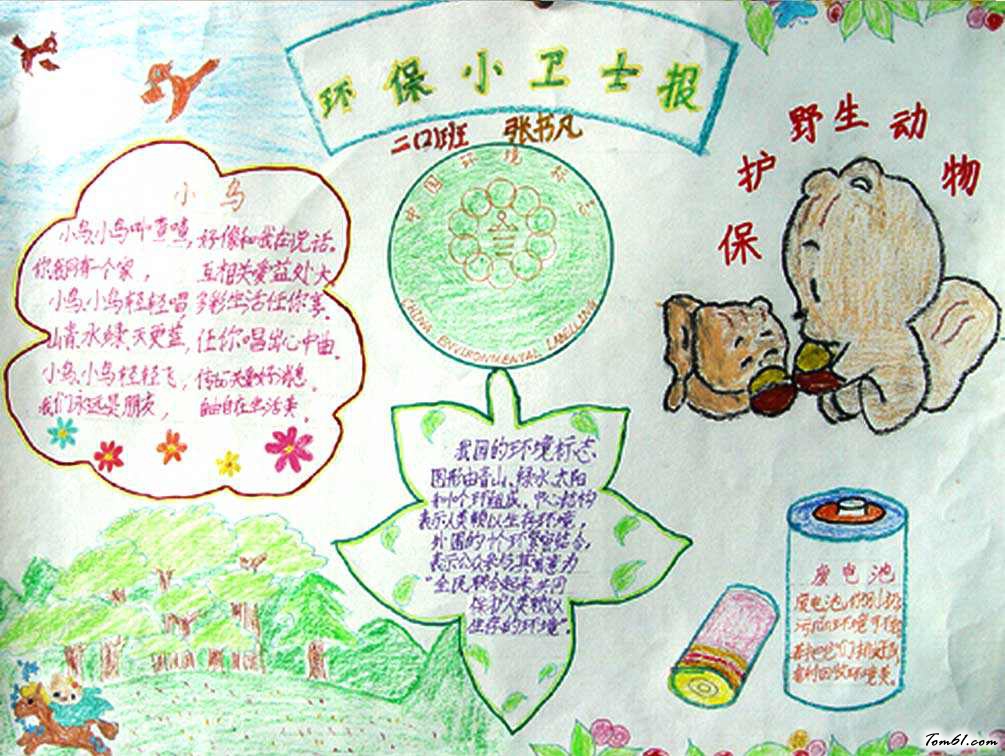 环保小卫士报
二(2)班 张书凡
中国环境标志
CHINA ENVIRONMENTAL LABELLING
保护野生动物
小鸟
小鸟,小鸟叫喳喳,好像和我在说话。
你我同有一个家, 互相关爱益处大
小鸟,小鸟轻轻唱,多彩生活任你享。
山青,水绿,天更蓝,任你唱出心中曲。
小鸟,小鸟轻轻飞,传播关爱好消息。
我们永远是朋友, 自由自在生活美。
我国的环境标志
图形由青山、绿水、太阳
和十个环组成。中心结构
表示人类赖以生存环境,
外围的十个环紧密结合,
表示公众参与,其寓意为
“全民联合起来,共同
保护人类赖以
生存的环境”。
废电池
废电池
污染环境
回收环境美。
Tom61.com